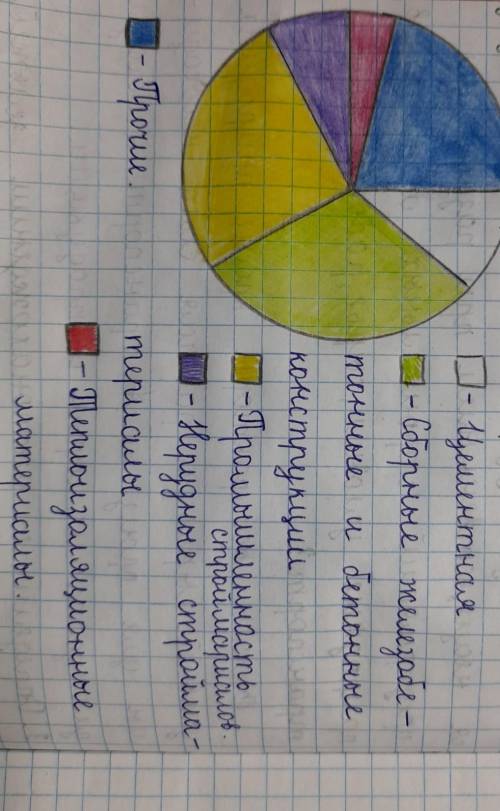 - Цементная
- Сборные железобе-
тонные и бетонные
конструкции
- Промышленность
стройматериалов.
- Нерудные стройма-
териалы
- Теплоизоляционные
материалы.
- Прочие.